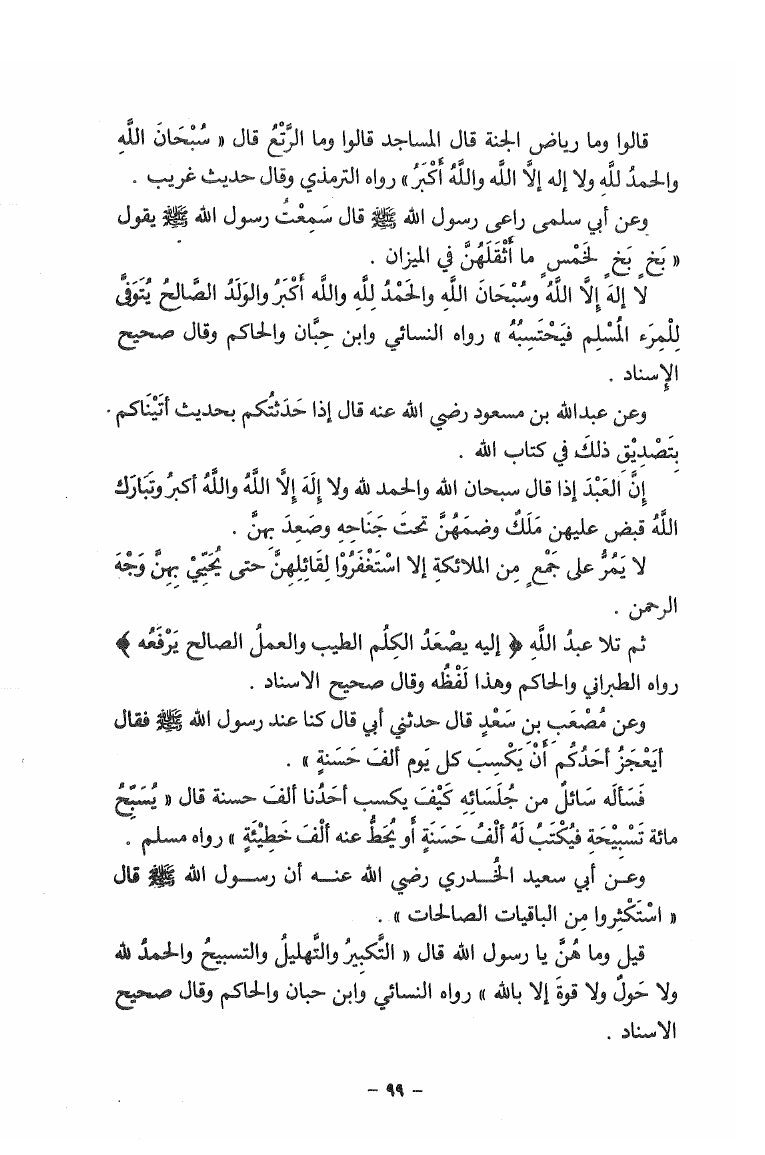 قالوا وما رياض الجنة قال المساجد قالوا وما الرَّتْعُ قال « سُبْحَانَ اللَّهِ
والحمدُ للَّهِ ولا إله إلَّا اللَّه واللَّهُ أَكْبَرُ » رواه الترمذي وقال حديث غريب .
وعن أبي سلمى راعى رسول الله ﷺ قال سَمِعْتُ رسول الله ﷺ يقول
« بَخٍ بَخٍ لَخَمْسٍ ما أَثْقَلَهُنَّ في الميزان .
لا إلهَ إلَّا اللَّهُ وسُبْحَانَ اللَّهِ والحَمْدُ لِلَّهِ واللَّه أَكْبَرُ والوَلَدُ الصَّالحُ يُتَوَفَّى
لِلْمِرَءِ المُسْلِمِ فيَحْتَسِبُهُ » رواه النسائي وابن حِبَّان والحاكم وقال صحيح
الإِسناد .
وعن عبدالله بن مسعود رضي الله عنه قال إذا حَدَثتُكم بحديث أتَيْنَاكم
بِتَصْدِيْقِ ذلكَ في كتاب الله .
إِنَّ العَبْدَ إذا قال سبحان الله والحمد لله ولا إلَهَ إلَّا اللَّهُ واللَّهُ أكبرُ وتَبَارَكَ
اللَّهُ قبض عليهن مَلَكٌ وضمَهُنَّ تحتَ جَنَاحِهِ وصَعِدَ بهنَّ .
لا يَمُرُّ على جَمْعٍ مِن الملائكةِ إلا اسْتَغْفَرُوْا لِقَائلِهنَّ حتى يُحَيِّيْ بِهنَّ وَجْهَ
الرحمن .
ثم تلا عبدُ اللَّهِ ﴿ إليه يصْعَدُ الكِلُم الطيب والعملُ الصالح يَرْفَعُه ﴾
رواه الطبراني والحاكم وهذا لَفْظُه وقال صحيح الاسناد .
وعن مُصْعَبِ بن سَعْدٍ قال حدثني أبي قال كنا عند رسول الله ﷺ فقال
أيَعْجَزُ أحَدُكُم أَنْ يَكْسِبَ كل يَومٍ ألفَ حَسَنةٍ » .
فَسَألَه سَائلٌ من جُلَسَائِه كَيْفَ يكسب أحَدُنا ألفَ حسنة قال « يُسَبِّحُ
مائة تَسْبِيْحَةِ فيُكْتَبُ لَهُ ألْفُ حَسَنَةٍ أو يُحَطُّ عنه ألْفَ خَطِيْئَةٍ » رواه مسلم .
وعن أبي سعيد الخُدري رضي الله عنه أن رسول الله ﷺ قال
« اسْتَكْثِروا مِن الباقيات الصالحات » .
قيل وما هُنَّ يا رسول الله قال « التَّكبيرُ والتَّهليلُ والتسبيحُ والحمدُ لله
ولا حَولٌ ولا قوةَ إلا بالله » رواه النسائي وابن حبان والحاكم وقال صحيح
الاسناد .
– ٩٩ –